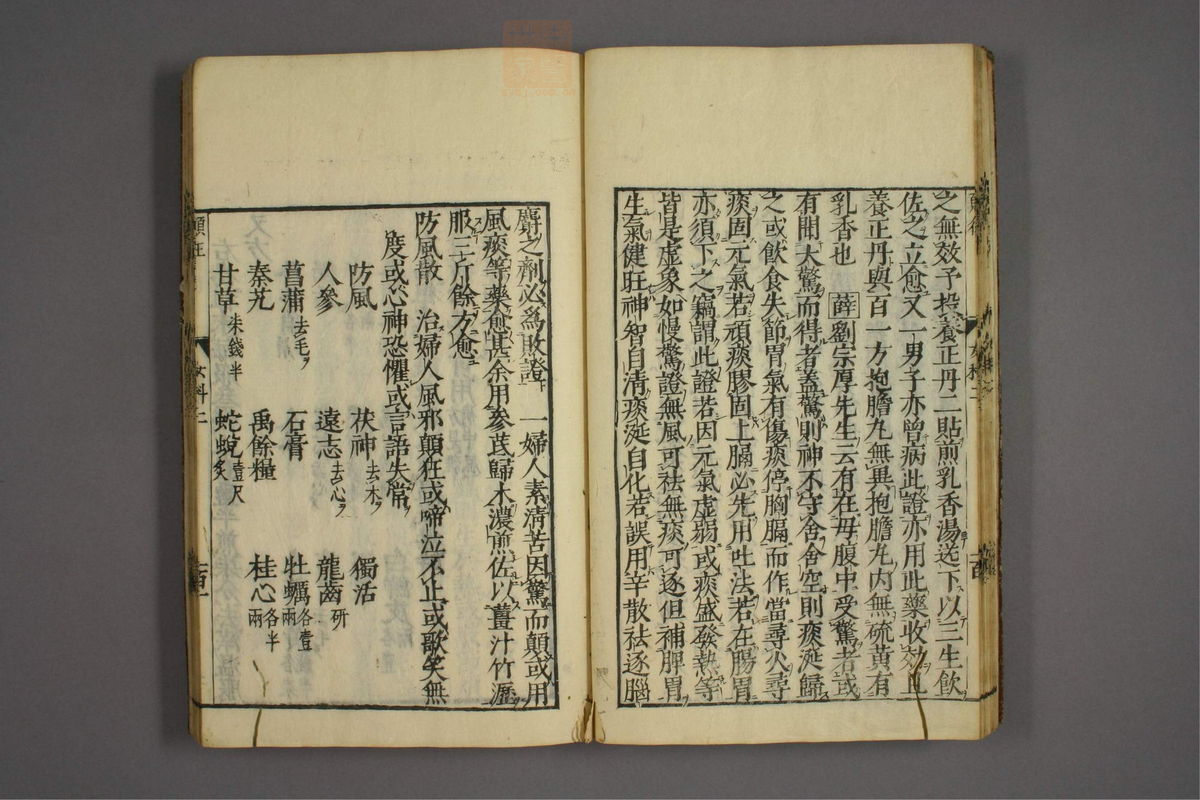 之無效予投養正丹二貼煎乳香湯送下以三生飲
佐之立愈又一男子亦曾病此證亦用此藥收效且
養正丹與百一方抱膽丸無異抱膽丸内無硫黃有
乳香也 薛 劉宗厚先生云有在母腹中受驚者或
有聞大驚而得者蓋驚則神不守舍舍空則痰涎歸
之或飲食失節胃氣有傷痰停胸膈而作當尋火尋
痰固元氣若頑痰膠固上膈必先用吐法若在腸胃
亦須下之竊謂此證若因元氣虛弱或痰盛發熱等
皆是虛象如慢驚證無風可祛無痰可逐但補脾胃
生氣健旺神智自清痰涎自化若誤用辛散祛逐腦
麝之劑必為敗證 一婦人素清苦因驚而顛或用
風痰等藥愈甚余用參芪歸木濃煎佐以薑汁竹瀝
服三斤餘方愈
防風散 治婦人風邪顛狂或啼泣不止或歌笑無
度或心神恐懼或言語失常
防風 茯神去木ヲ 獨活
人參 遠志去心ヲ 龍齒研
菖蒲去毛ヲ 石膏 牡蠣各壹兩
秦艽 禹餘糧 桂心各半兩
甘草朱錢半 蛇蛻壹尺炙
顛狂 女科二